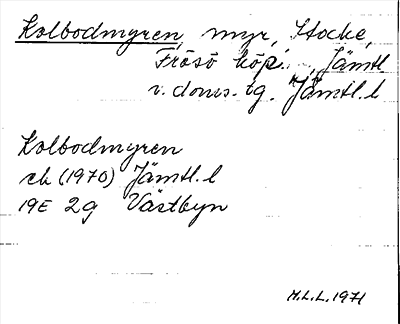 Kolbodmyren, myr, Stocke,
Frösö köp., Jämtl
v. doms. tg. Jämtl. l
Kolbodmyren
ek (1970) Jämtl. l
19E 2g Västbyn
M.L.L. 1971